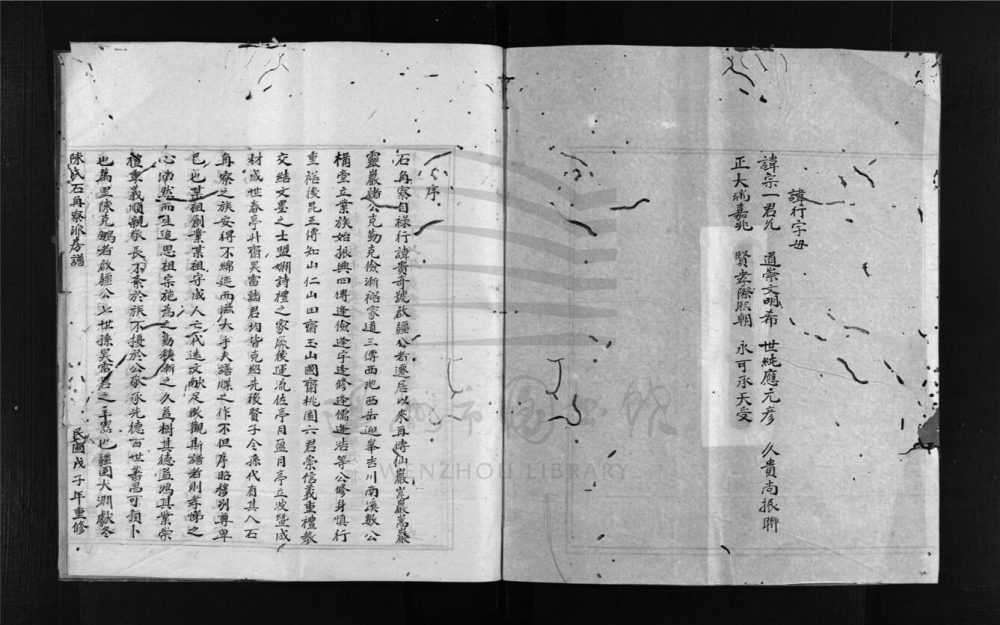 諱行字母
諱宗一君允 道崇文明希 世純應元彥 久貴尚振聯
正大瑞嘉兆 賢孝際熙朝 永可承天受
序
石角寮自祿行諱貴奇號啟疆公者遷居以來再傳仙巖崑巖嵩巖
靈巖諸公克勤克儉漸裕家道三傳西池西岳迎峯吉川南溪數公
構堂立業族始振興四傳逢儉逢宇逢修逢儒逢浩等公修身慎行
垂裕後昆五傳知山仁山田齋玉山國齋桃園六君崇信義重禮教
交結文墨之士盟婣詩禮之家厥後運流佐亭月盈月亭立波暨成
材成世春亭升齋昊雷諸君均皆克紹先後賢子令孫代有其人石
角寮之族安得不綿延而滋大乎夫譜牒之作不但序昭穆別尊卑
已也某祖創業某祖守成人亡代遠文献足徵觀斯譜者則孝悌之
心油然而生追思祖宗施為之勤積漸之久益樹其德益鴻其業崇
禮重義順親敬長不紊於族不擾於公敬承先德百世蕃昌可預卜
也萬里陳克鵾者啟疆公 世孫昊雷君之 也疆圉大淵獻冬
陳氏石角寮派房譜 民國戊子年重修
WENZHOU LIBRARY